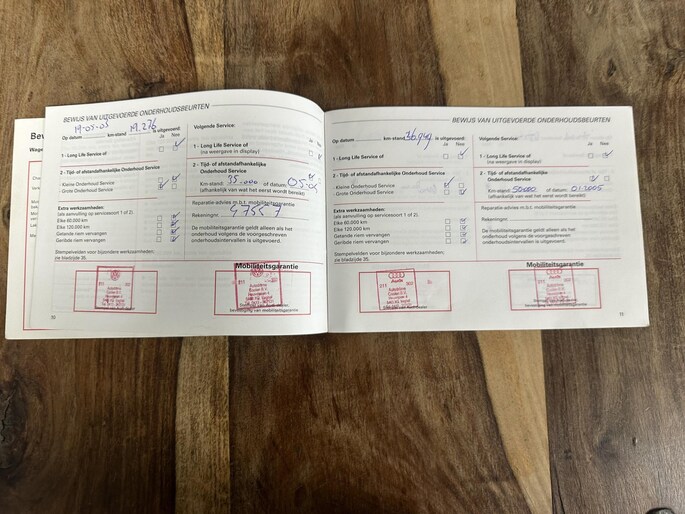 BEWIJS VAN UITGEVOERDE ONDERHOUDSBEURTEN
19-05-03 19.276
Op datum km-stand is uitgevoerd:
Ja Nee
1 - Long Life Service of
2 - Tijd- of afstandafhankelijke Onderhoud Service
Kleine Onderhoud Service
Grote Onderhoud Service
Extra werkzaamheden:
(als aanvulling op servicesoort 1 of 2)
Elke 60.000 km
Elke 120.000 km
Getande riem vervangen
Geribde riem vervangen
Stempelvelden voor bijzondere werkzaamheden:
zie bladzijde 35.
Volgende Service:
Ja Nee
1 - Long Life Service
(na weergave in display)
2 - Tijd- of afstandafhankelijke
Onderhoud Service
Km-stand: 35.000 of datum: 05-05
(afhankelijk van wat het eerst wordt bereikt)
Reparatie-advies m.b.t. mobiliteitsgarantie
Rekeningnr.
De mobiliteitsgarantie geldt alleen als het
onderhoud volgens de voorgeschreven
onderhoudsintervallen is uitgevoerd.
Mobiliteitsgarantie
bevestiging van mobiliteitsgarantie
10
BEWIJS VAN UITGEVOERDE ONDERHOUDSBEURTEN
Op datum km-stand 36.949 is uitgevoerd:
Ja Nee
1 - Long Life Service of
2 - Tijd- of afstandafhankelijke Onderhoud Service
Kleine Onderhoud Service
Grote Onderhoud Service
Extra werkzaamheden:
(als aanvulling op servicesoort 1 of 2)
Elke 60.000 km
Elke 120.000 km
Getande riem vervangen
Geribde riem vervangen
Stempelvelden voor bijzondere werkzaamheden:
zie bladzijde 35.
Volgende Service:
Ja Nee
1 - Long Life Service
(na weergave in display)
2 - Tijd- of afstandafhankelijke
Onderhoud Service
Km-stand: 50000 of datum: 01-2005
(afhankelijk van wat het eerst wordt bereikt)
Reparatie-advies m.b.t. mobiliteitsgarantie
Rekeningnr.
De mobiliteitsgarantie geldt alleen als het
onderhoud volgens de voorgeschreven
onderhoudsintervallen is uitgevoerd.
Mobiliteitsgarantie
Audi
bevestiging van mobiliteitsgarantie
11